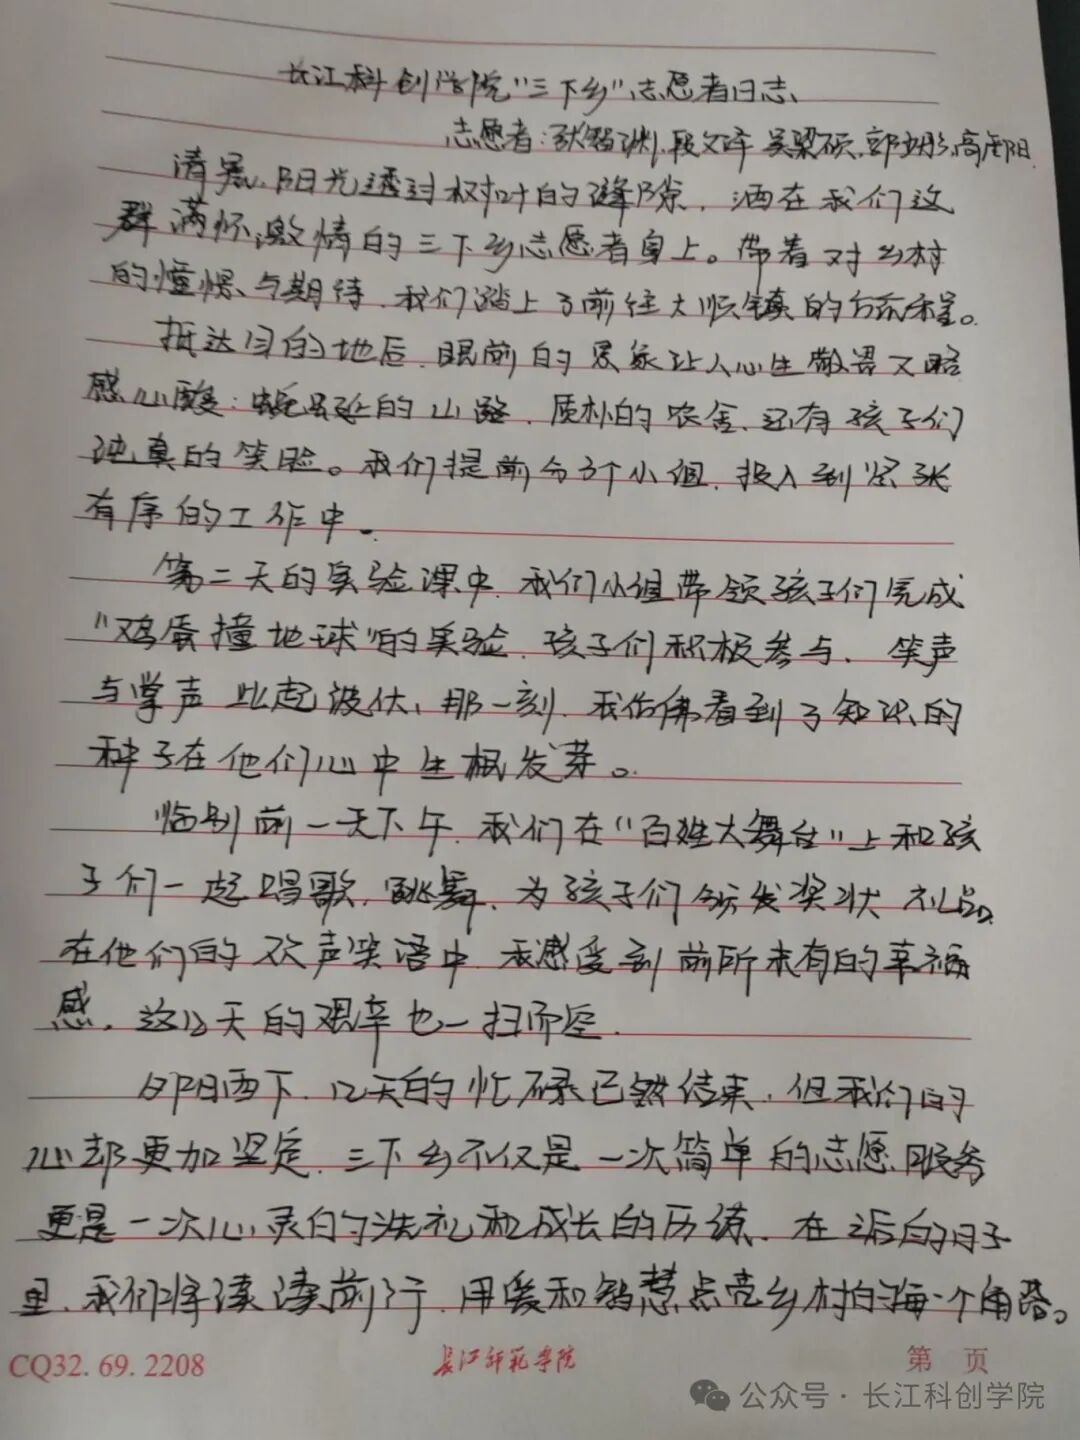 长江科创学院"三下乡"志愿者日志
志愿者:张智渊,段文泽
清晨,阳光透过权树叶的缝隙,洒在我们这
群满怀激情的三下乡志愿者身上。带着对乡村
的憧憬与期待,我们踏上了前往大顺镇的征程。
抵达目的地后,眼前的景象让人心生敬畏又略
感心酸:蜿蜒的山路,质朴的农舍,还有孩子们
纯真的笑脸。我们提前分了个小组,投入到紧张
有序的工作中。
第二天的实验课中,我们小组带领孩子们完成
"鸡蛋撞地球"的实验,孩子们积极参与,笑声
与掌声此起波伏,那一刻,我仿佛看到了知识的
种子在他们心中生根发芽。
临别前一天下午,我们在"百姓大舞台"上和孩
子们一起唱歌,跳舞,为孩子们颁发奖状 礼品。
在他们的欢声笑语中,我感受到前所未有的幸福
感,这12天的艰辛也一扫而空.
夕阳西下,12天的忙碌已然结束,但我们的
心却更加坚定,三下乡不仅是一次简单的志愿服务
更是一次心灵的洗礼和成长的历练,在之后的日子
里,我们将续前行,用爱和智慧点亮乡村的每一个角落。
CQ32.69.2208
长江师范学院
第 页
公众号·长江科创学院